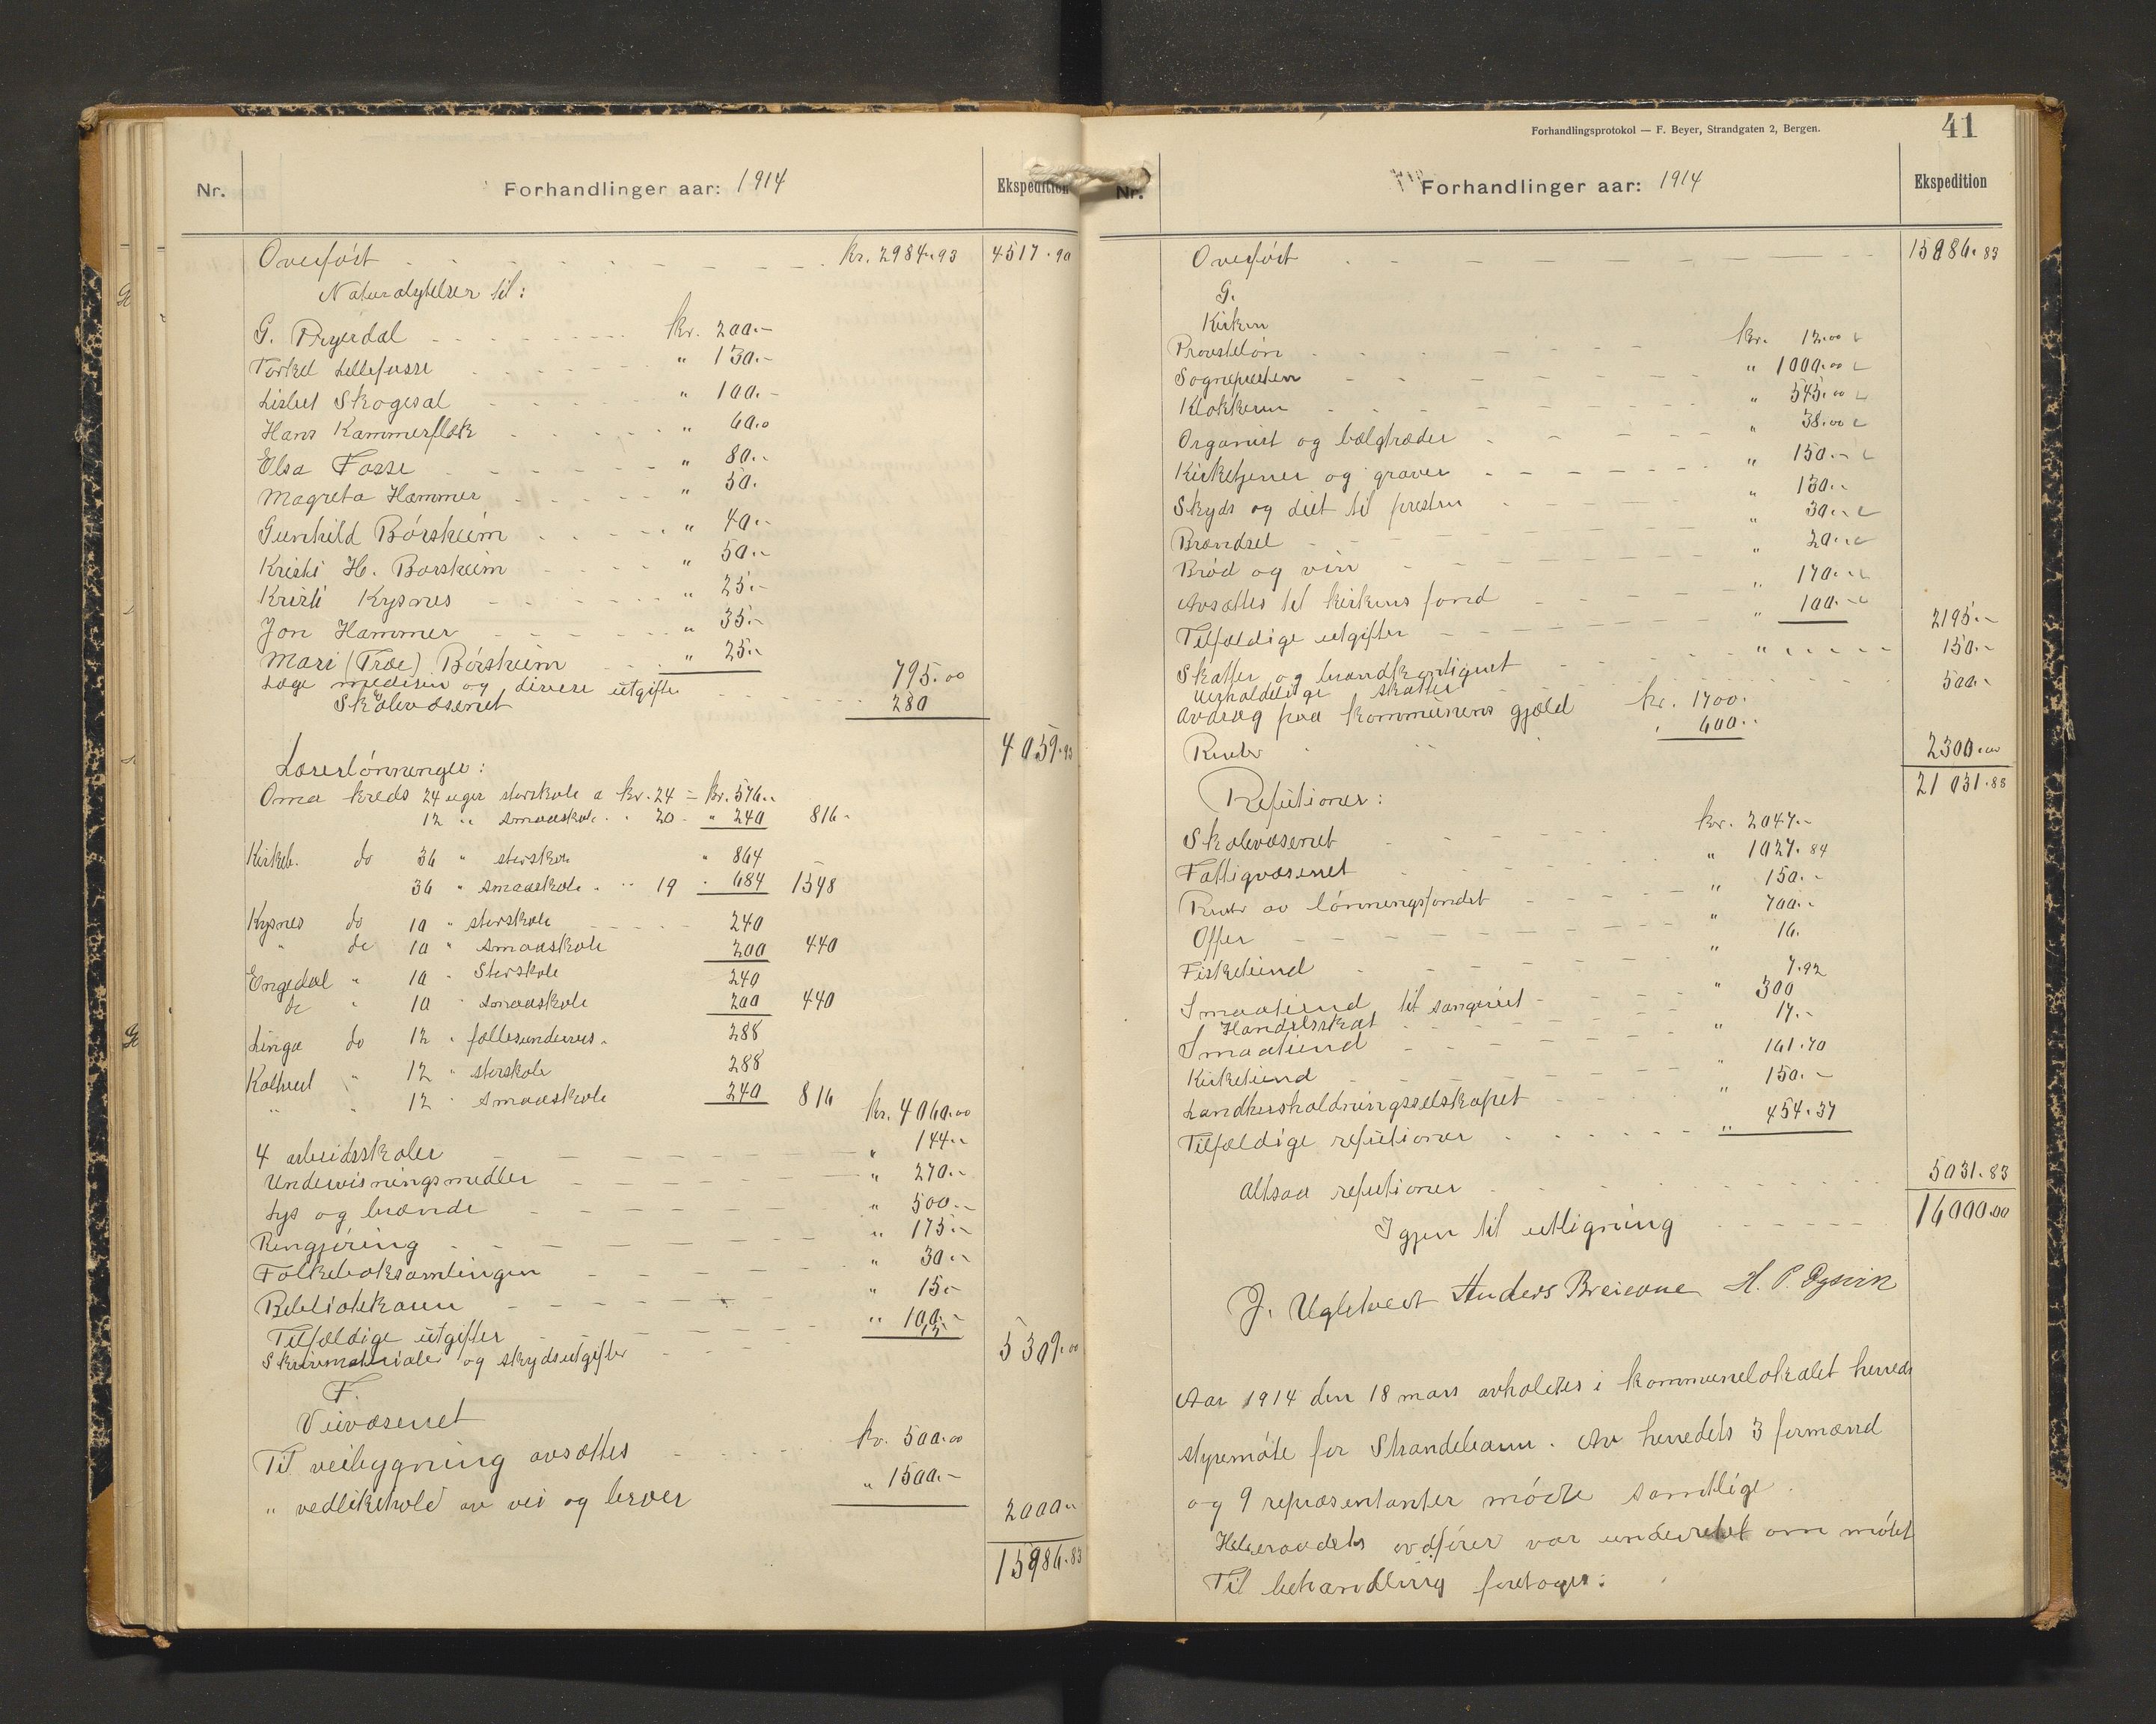 Nr. Forhandlinger aar: 1914 Ekspedition
Overført kr. 2984.93 4517.90
Naturalytelser til:
G. Dryerdal kr. 200.-
Torkel Lillefosse " 130.-
Lisbet Skogesal " 100.-
Hans Kammerflæk " 60.0
Elsa Fosse " 80.-
Magreta Hammer " 50.
Gunhild Børsheim " 40.-
Kristi H. Borsheim " 50.-
Kristi Kysnes " 25.-
Jon Hammer " 35.-
Mari (Træe) Børsheim " 25.-
795.00
Læge medisin og divere utgifter 280
4059.93
Skolevæsenet
Lærerlønninger:
Oma kreds 24 uger storskole a kr. 24 = kr. 576.-
12 " smaaskole " 20 - " 240 816-
Kirkeb. do 36 " storskole " 864
36 " smaaskole " 19 " 684 1548
Kysnes do 10 " storskole 240
" do 10 " smaaskole 200 440
Engedal " 10 " Storskole 240
do " 10 " smaaskole 200 440
Linga do 12 " fællesundervis. 288
Kolltveit " 12 " storskole 288
" " 12 " smaaskole 240 816
kr. 4060.00
4 arbeidsskoler " 144.-
Undervisningsmedler " 270.-
Lys og brænde " 500.-
Rengjøring " 175.-
Folkeboksamlingen " 30.-
Bibliotekaren " 15.-
Tilfældige utgifter " 100.-
Skrivematerialer og skydsutgifter 15
5309.00
F.
Veivæsenet
Til veibygning avsættes kr. 500.00
" vedlikehold av vei og broer " 1500.-
2000.-
15886.83
Forhandlingsprotokol — F. Beyer, Strandgaten 2, Bergen.
41
Nr. Forhandlinger aar: 1914 Ekspedition
Overført 15886.83
G.
Kirken
Provsteløn kr. 12.00
Sognepresten " 1000.00
Klokkeren " 545.00
Organist og bælgtræder " 38.00
Kirketjener og graver " 150.-
Skyds og diet til presten " 130.-
Brændsel " 30.-
Brød og vin " 20.-
Avsættes til kirkens fond " 170.-
Tilfældige utgifter " 100.-
2195.-
Skatter og brandkontigent 150.-
Uerholdelige skatter 500.-
Avdrag paa kommunens gjæld kr. 1700.
Renter " 600.-
2300.00
21031.83
Refutioner:
Skolevæsenet kr. 2047.-
Fattigvæsenet " 1027.84
Renter av lønningsfondet " 150.-
Offer " 700.-
Fisketiend " 16.
Smaatiend til sogniet 7.92
Handelsskat " 300
Smaatiend " 17.-
Kirketiend " 161.70
Landhusholdningsselskapet " 150.-
Tilfældige refutioner " 454.37
Altsaa refutioner 5031.83
Igjen til utligning 16000.00
J. Ugletveit Anders Breievne H. P. Dysvik
Aar 1914 den 18 mars avholdtes i kommunelokalet herreds
styremøte for Strandebarm. Av herredets 3 formænd
og 9 repræsentanter mødte samtlige.
Helseraadets ordfører var underrettet om møtet
Til behandling foretoges: